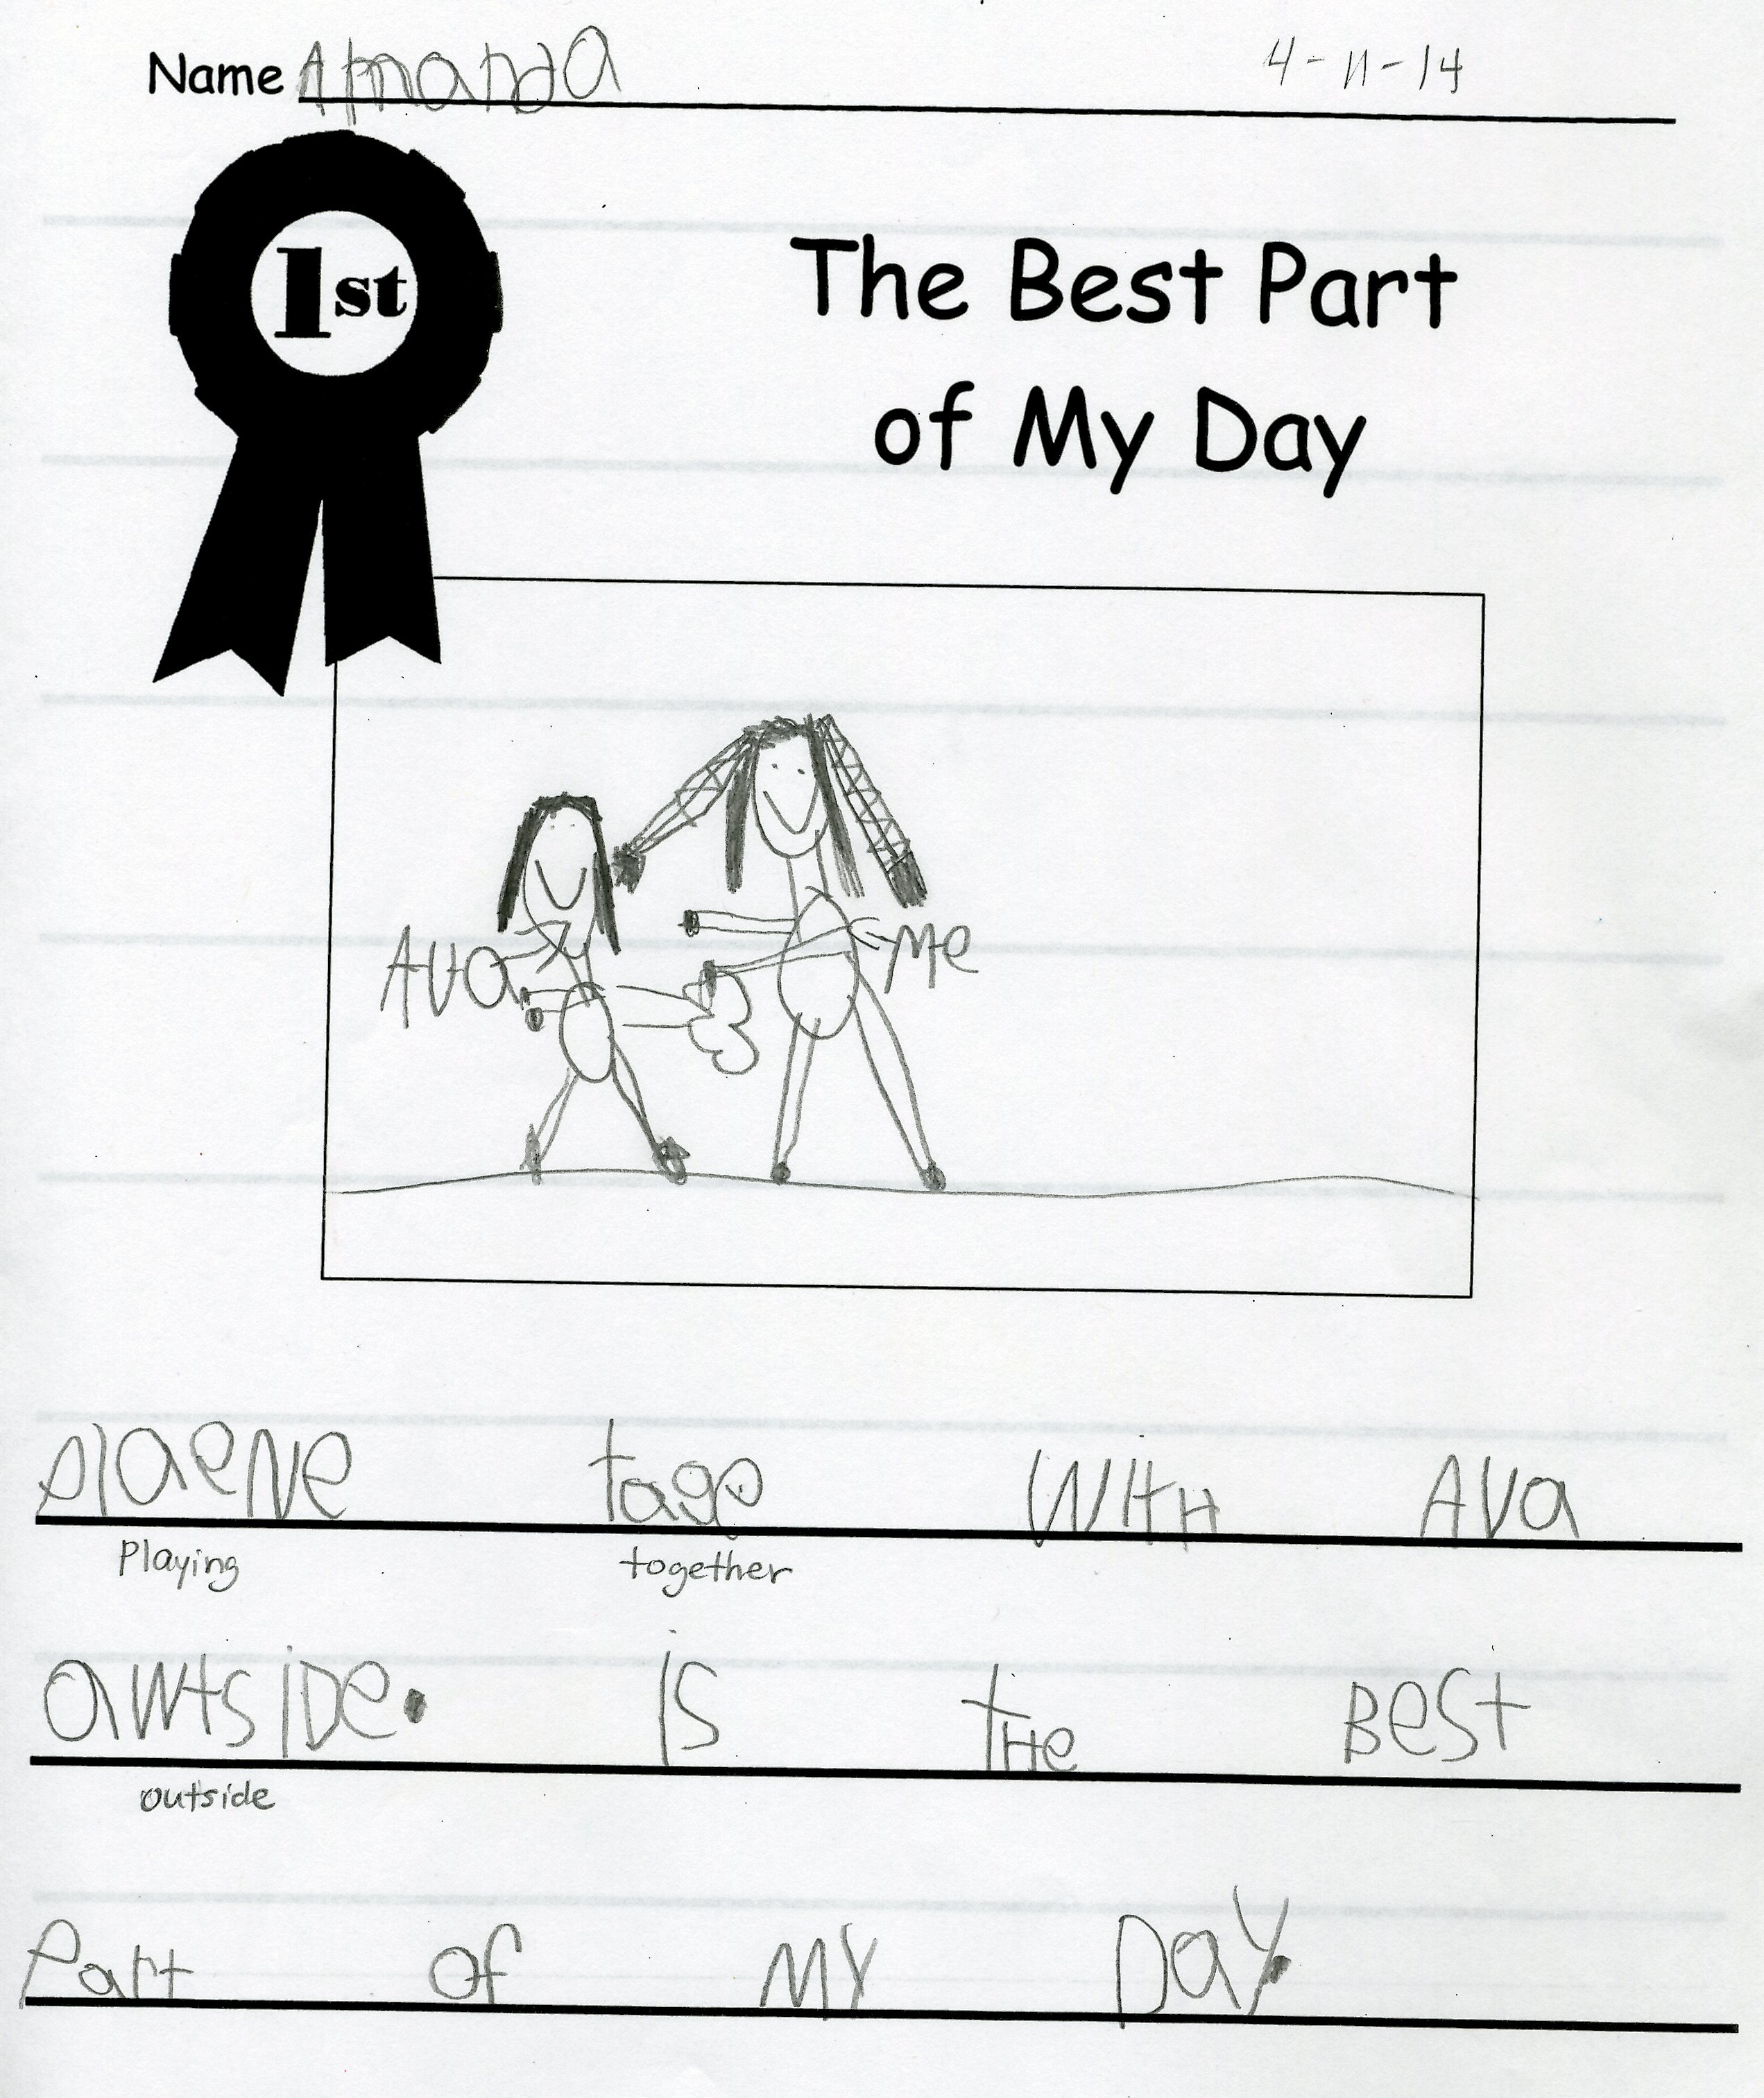 Name Amanda 4-11-14
1st
The Best Part
of My Day
Ava
Me
PlaeNe tage WitH AVa
Playing together
awtsiDe. is tHe BeSt
outside
Part of MY Day.